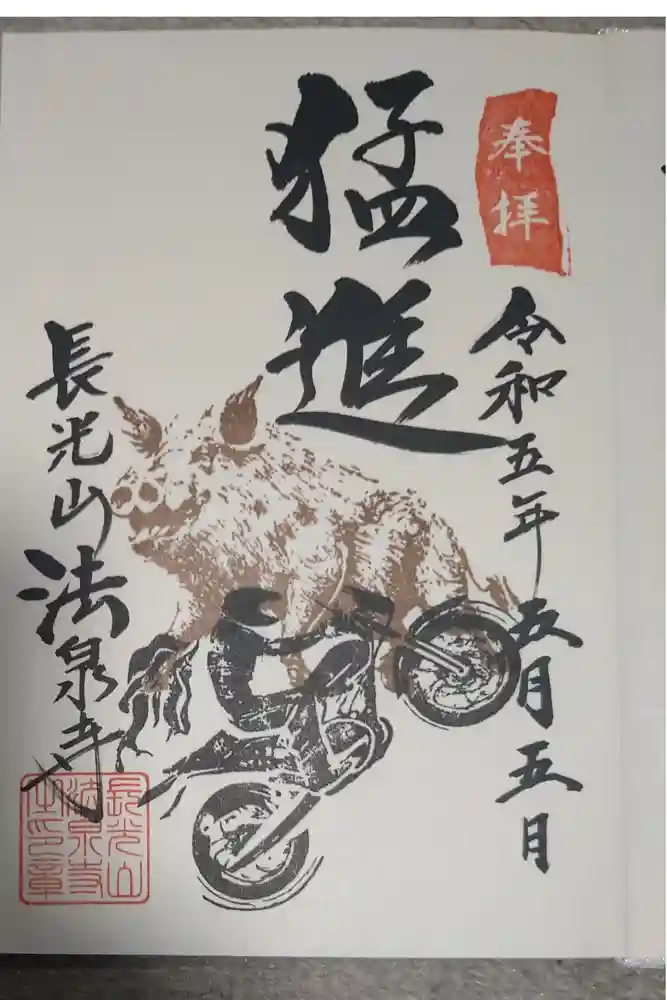 奉拝
令和五年五月五月
猛進
長光山法泉寺
長光山
法泉寺
住印章